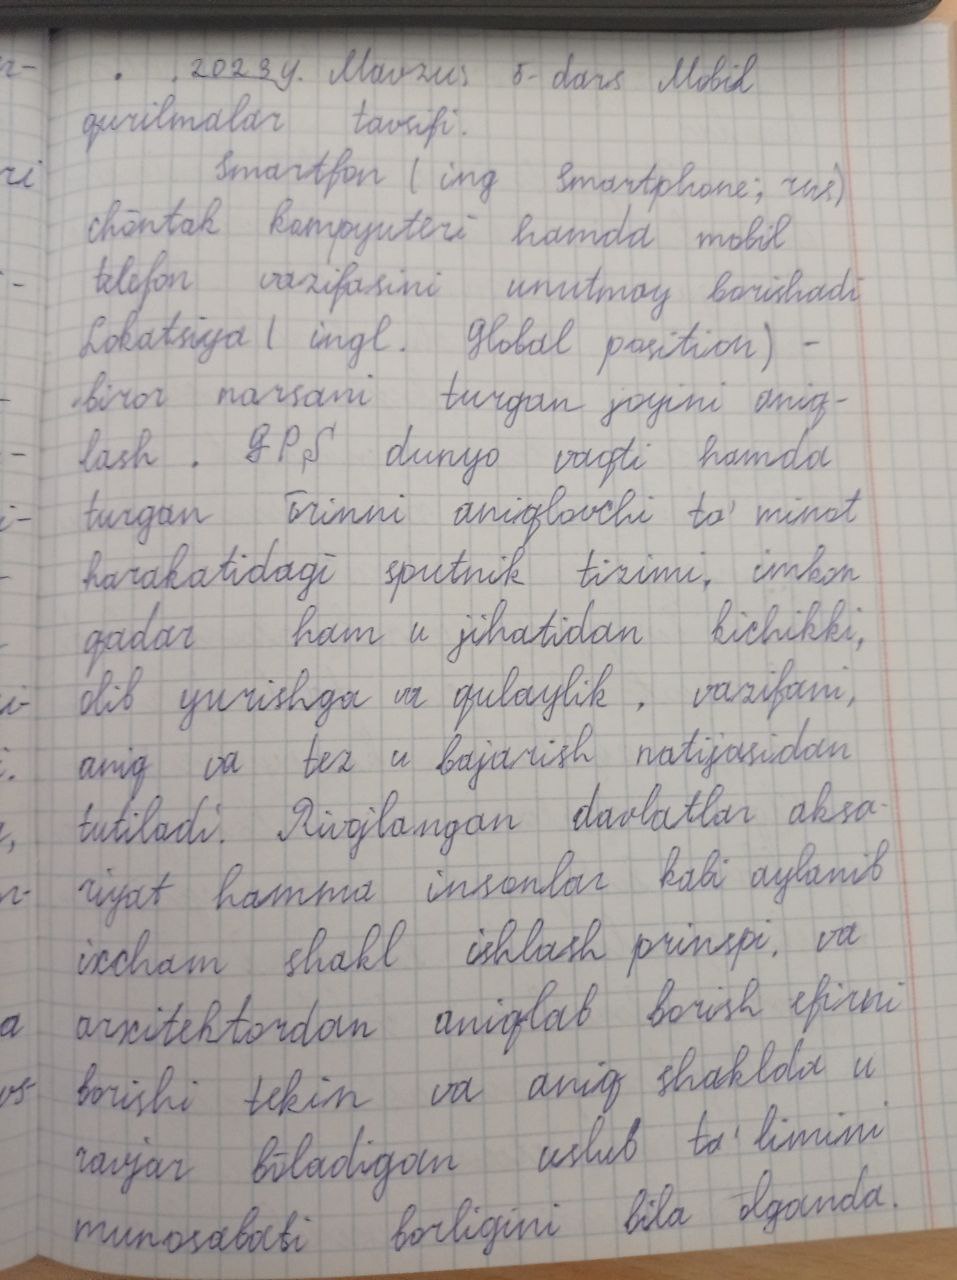 . . 2023y. Mavzu: 5-dars Mobil
qurilmalar tavsifi.
Smartfon ( ing Smartphone; rus)
chōntak kompyuteri hamda mobil
telefon vazifasini unutmay borishadi
Lokatsiya ( ingl. Global position) -
biror narsani turgan joyini aniq-
lash. GPS dunyo vaqti hamda
turgan ōrinni aniqlovchi ta'minot
harakatidagi sputnik tizimi, imkon
qadar ham u jihatidan kichikki,
olib yurishga va qulaylik, vazifani,
aniq va tez u bajarish natijasidan
tutiladi. Rivojlangan davlatlar aksa-
riyat hamma insonlar kabi aylanib
ixcham shakl ishlash prinspi, va
arxitektordan aniqlab borish efirni
borishi tekin va aniq shaklda u
ravjar bōladigan uslub ta'limini
munosabati borligini bila olganda.
ri
i-
i.
a